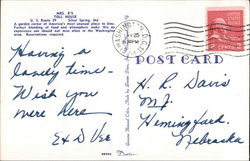 MRS. K'S
TOLL HOUSE
U. S. Route 29 Silver Spring, Md.
A garden corner of America's most unusual place to dine.
Perfect blending of food and atmosphere make this an
experience one should not miss when in the Washington
area. Reservations required.
POST CARD
Having a
lovely time -
Wish you
were here
H. R. Davis
Hemingford.
Nebraska